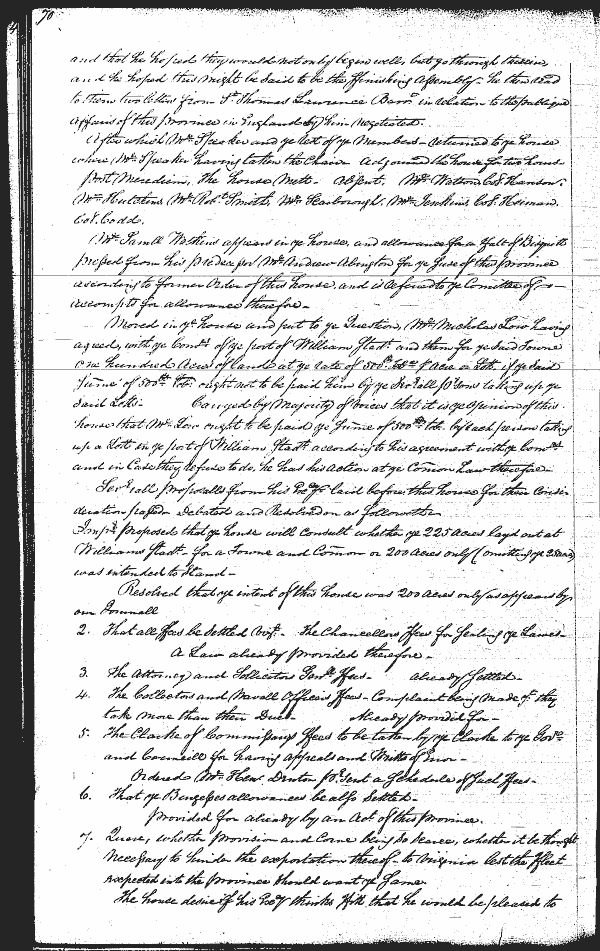 70
and that he hoped they would not only begin well, but go through therein
and he hoped this might be said to be the ffinishing Assembly. he then read
to them two letters from Sr. Thomas Lawrence Barrt in relation to the publique
affairs of this province in England by him negotiated.
After which Mr. Speaker and ye rest of ye Members returned to ye house
where Mr. Speaker having taken the Chair Adjourned the house for two hours
Post Meridiem, The house Mett. Absent. Mr. Watson Col. Hanson,
Mr. Hutchins Mr. Robt. Smith, Mr. Scarborough, Mr. Jenkins Col.
Col. Codd.
Mr. Samll Watkins appears in ye house, and allowance for a of
pressed from his Mr. Andrew Abington for ye use of this province
according to former Order of this house, and is referred to ye Comittee of
accompts for allowance therefore
Moved in ye house and put to ye Question, Mr. Nicholas Low having
agreed, with ye Comrs of ye port of William Stadt and them for ye said Towne
one hundred Acres of land at ye rate of 500lb Tobo P Acre or Lott. if ye said
Sume of 500lb Tob. ought not to be paid him by ye Severall psons taking up ye
said Lotts. Carryed by Majority of voices that it is ye Opinion of this
house that Mr. Low ought to be paid ye Sume of 500lb Tob. by each person taking
up a Lott in ye port of William Stadt according to his agreement with ye Comrs
and in Case they refuse to do, he has his action at ye Comon Law therefore
Severall proposalls from his Excy laid before this house for their Consi-
deration passed Debated and Resolved on as followeth
Impr. Proposed that ye house will consult whether ye 225 acres layd out at
Williams Stadt for a Towne and Comon or 200 acres only (omitting ye 25 acres)
was intended to Stand
Resolved that ye intent of this house was 200 acres only as appears by
our Journall
2. That all ffees be Settled vizt. The Chancellors ffees for Sealing ye Lawes
A Law already provided therefore
3. The Attorney and Sollicitors Genll ffees already Settled
4. The Collectors and Navall Officers ffees Complaint being Made yt they
take more than their Dues Already provided for
5. The Clarke of Commissary ffees to be taken by ye Clarke to ye Govr
and Councill for having appeals and Writts of Error
Ordered Mr. Hen: Denton psent a Schedule of Such ffees
6. That ye Burgesses allowances be also Settled
Provided for already by an Act of this Province.
7. Quere, whether provision and Corne being so scarce, whether it be thought
Necessary to hinder the exportation thereof to Virginia lest the ffleet
expected into the Province should want ye Same
The house desires if his Excy thinks fitt that he would be pleased to